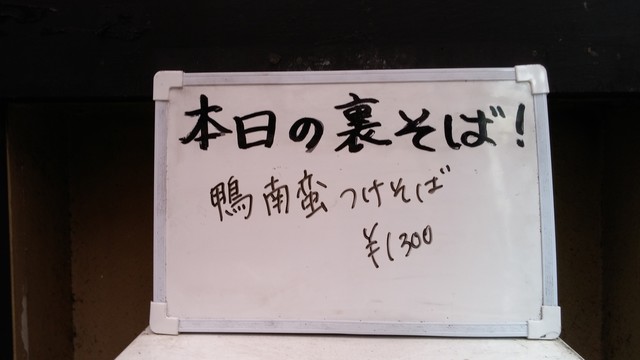 本日の裏そば!
鴨南蛮つけそば
¥1300